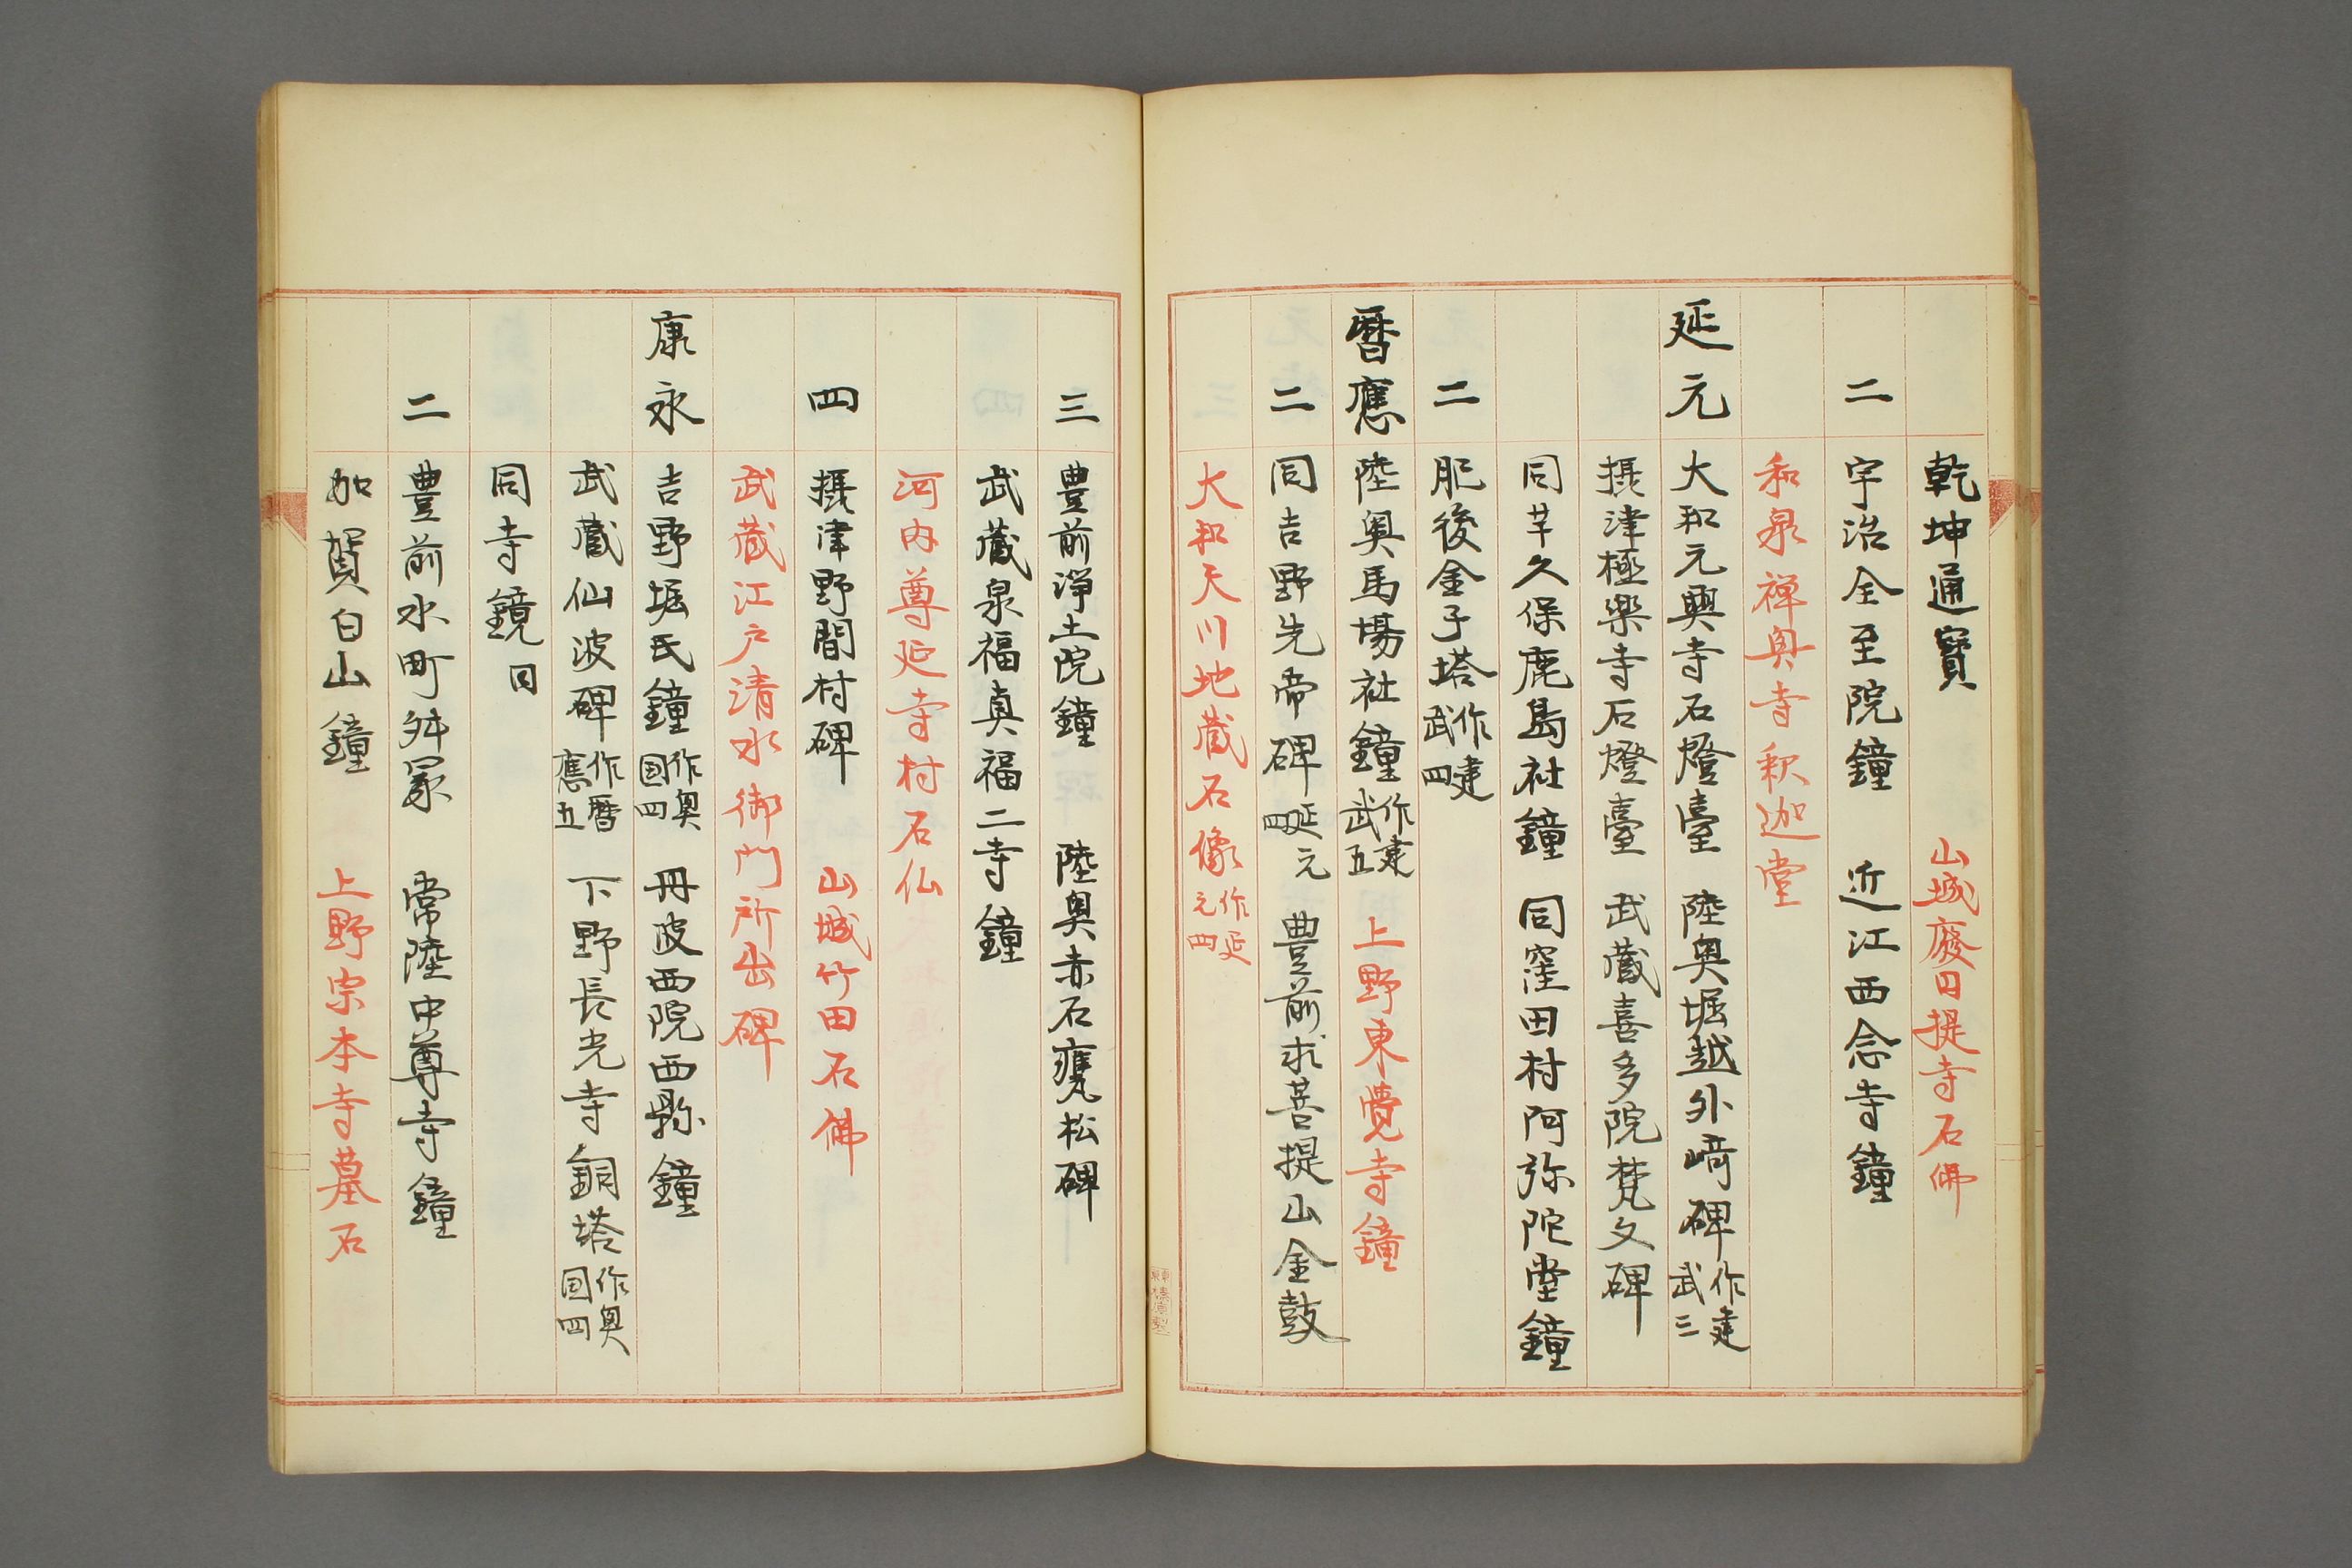 乾坤通寳 山城廢日提寺石佛
二 宇治全至院鐘 近江西念寺鐘
和泉禅興寺釈迦堂
延元 大和元興寺石燈臺 陸奥堀越外﨑碑 作建武三
摂津極楽寺石燈臺 武蔵喜多院梵文碑
同芋久保鹿島社鐘 同窪田村阿弥陀堂鐘
二 肥後金子塔 作建武四
暦應 陸奥馬場社鐘 作建武五 上野東覺寺鐘
二 同吉野先帝碑 延元四 豊前求菩提山金鼓
大和天川地蔵石像 作延元四
三 豊前淨土院鐘 陸奥赤石甕松碑
武蔵泉福真福二寺鐘
河内尊延寺村石仏
四 摂津野間村碑 山城竹田石佛
武蔵江戸清水御門所出碑
康永 吉野堀氏鐘 作興国四 丹波西院西縣鐘
武蔵仙波碑 作暦應五 下野長光寺銅塔 作興国四
同寺鏡 日
二 豊前水町舛冡 常陸中尊寺鐘
加賀白山鐘 上野宗本寺墓石